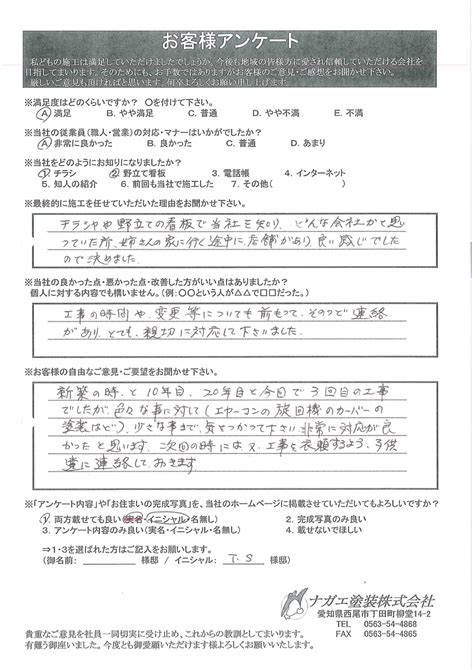 お客様アンケート
私どもの施工は満足していただけましたでしょうか。今後も地域の皆様方に愛され信頼していただける会社を
目指してまいります。そのためにも、お手数ではありますがお客様のご意見・ご感想をお聞かせ下さい。
厳しいご意見も頂ければと思います。何卒よろしくお願い申し上げます。
※満足度はどのくらいですか? 〇を付けて下さい。
A. 満足 B. やや満足 C. 普通 D. やや不満 E. 不満
※当社の従業員(職人・営業)の対応・マナーはいかがでしたか?
A. 非常に良かった B. 良かった C. 普通 D. あまり
※当社をどのようにお知りになりましたか?
1. チラシ 2. 野立て看板 3. 電話帳 4. インターネット
5. 知人の紹介 6. 前回も当社で施工した 7. その他( )
※最終的に施工を任せていただいた理由をお聞かせ下さい。
チラシや野立ての看板で当社を知り、どんな会社かと思
っていた所、姉さんの家に行く途中に、店舗があり良い感じでした
ので決めました。
※当社の良かった点・悪かった点・改善した方がいい点はありましたか?
個人に対する内容でも構いません。(例:〇〇という人が△△で口口だった。)
工事の時間や、変更等についても前もって、そのつど連絡
があり、とても、親切に対応して下さいました。
※お客様の自由なご意見・ご要望をお聞かせ下さい。
新築の時と10年目、20年目と今回で3回目の工事
でしたが、色々な事に対して(エヤーコンの旋回機のカバーの
塗装など)少さな事まで、気をつかって下さい非常に対応が良
かったと思います。次回の時には又、工事を依頼するよう、子供
達に連絡して、おきます。
※「アンケート内容」や「お住まいの完成写真」を、当社のホームページに掲載させていただいてもよろしいですか?
1. 両方載せても良い(実名・イニシャル・名無し) 2. 完成写真のみ良い
3. アンケート内容のみ良い(実名・イニシャル・名無し) 4. 載せないでほしい
⇒1・3を選ばれた方はご記入をお願いします。
(御名前: 様邸 / イニシャル: T.S 様邸)
ナガエ塗装株式会社
愛知県西尾市丁田町柳堂14-2
TEL 0563-54-4868
FAX 0563-54-4865
貴重なご意見を社員一同切実に受け止め、これからの教訓としてまいります。
有難う御座いました。今度とも御愛顧いただけます様よろしくお願いいたします。